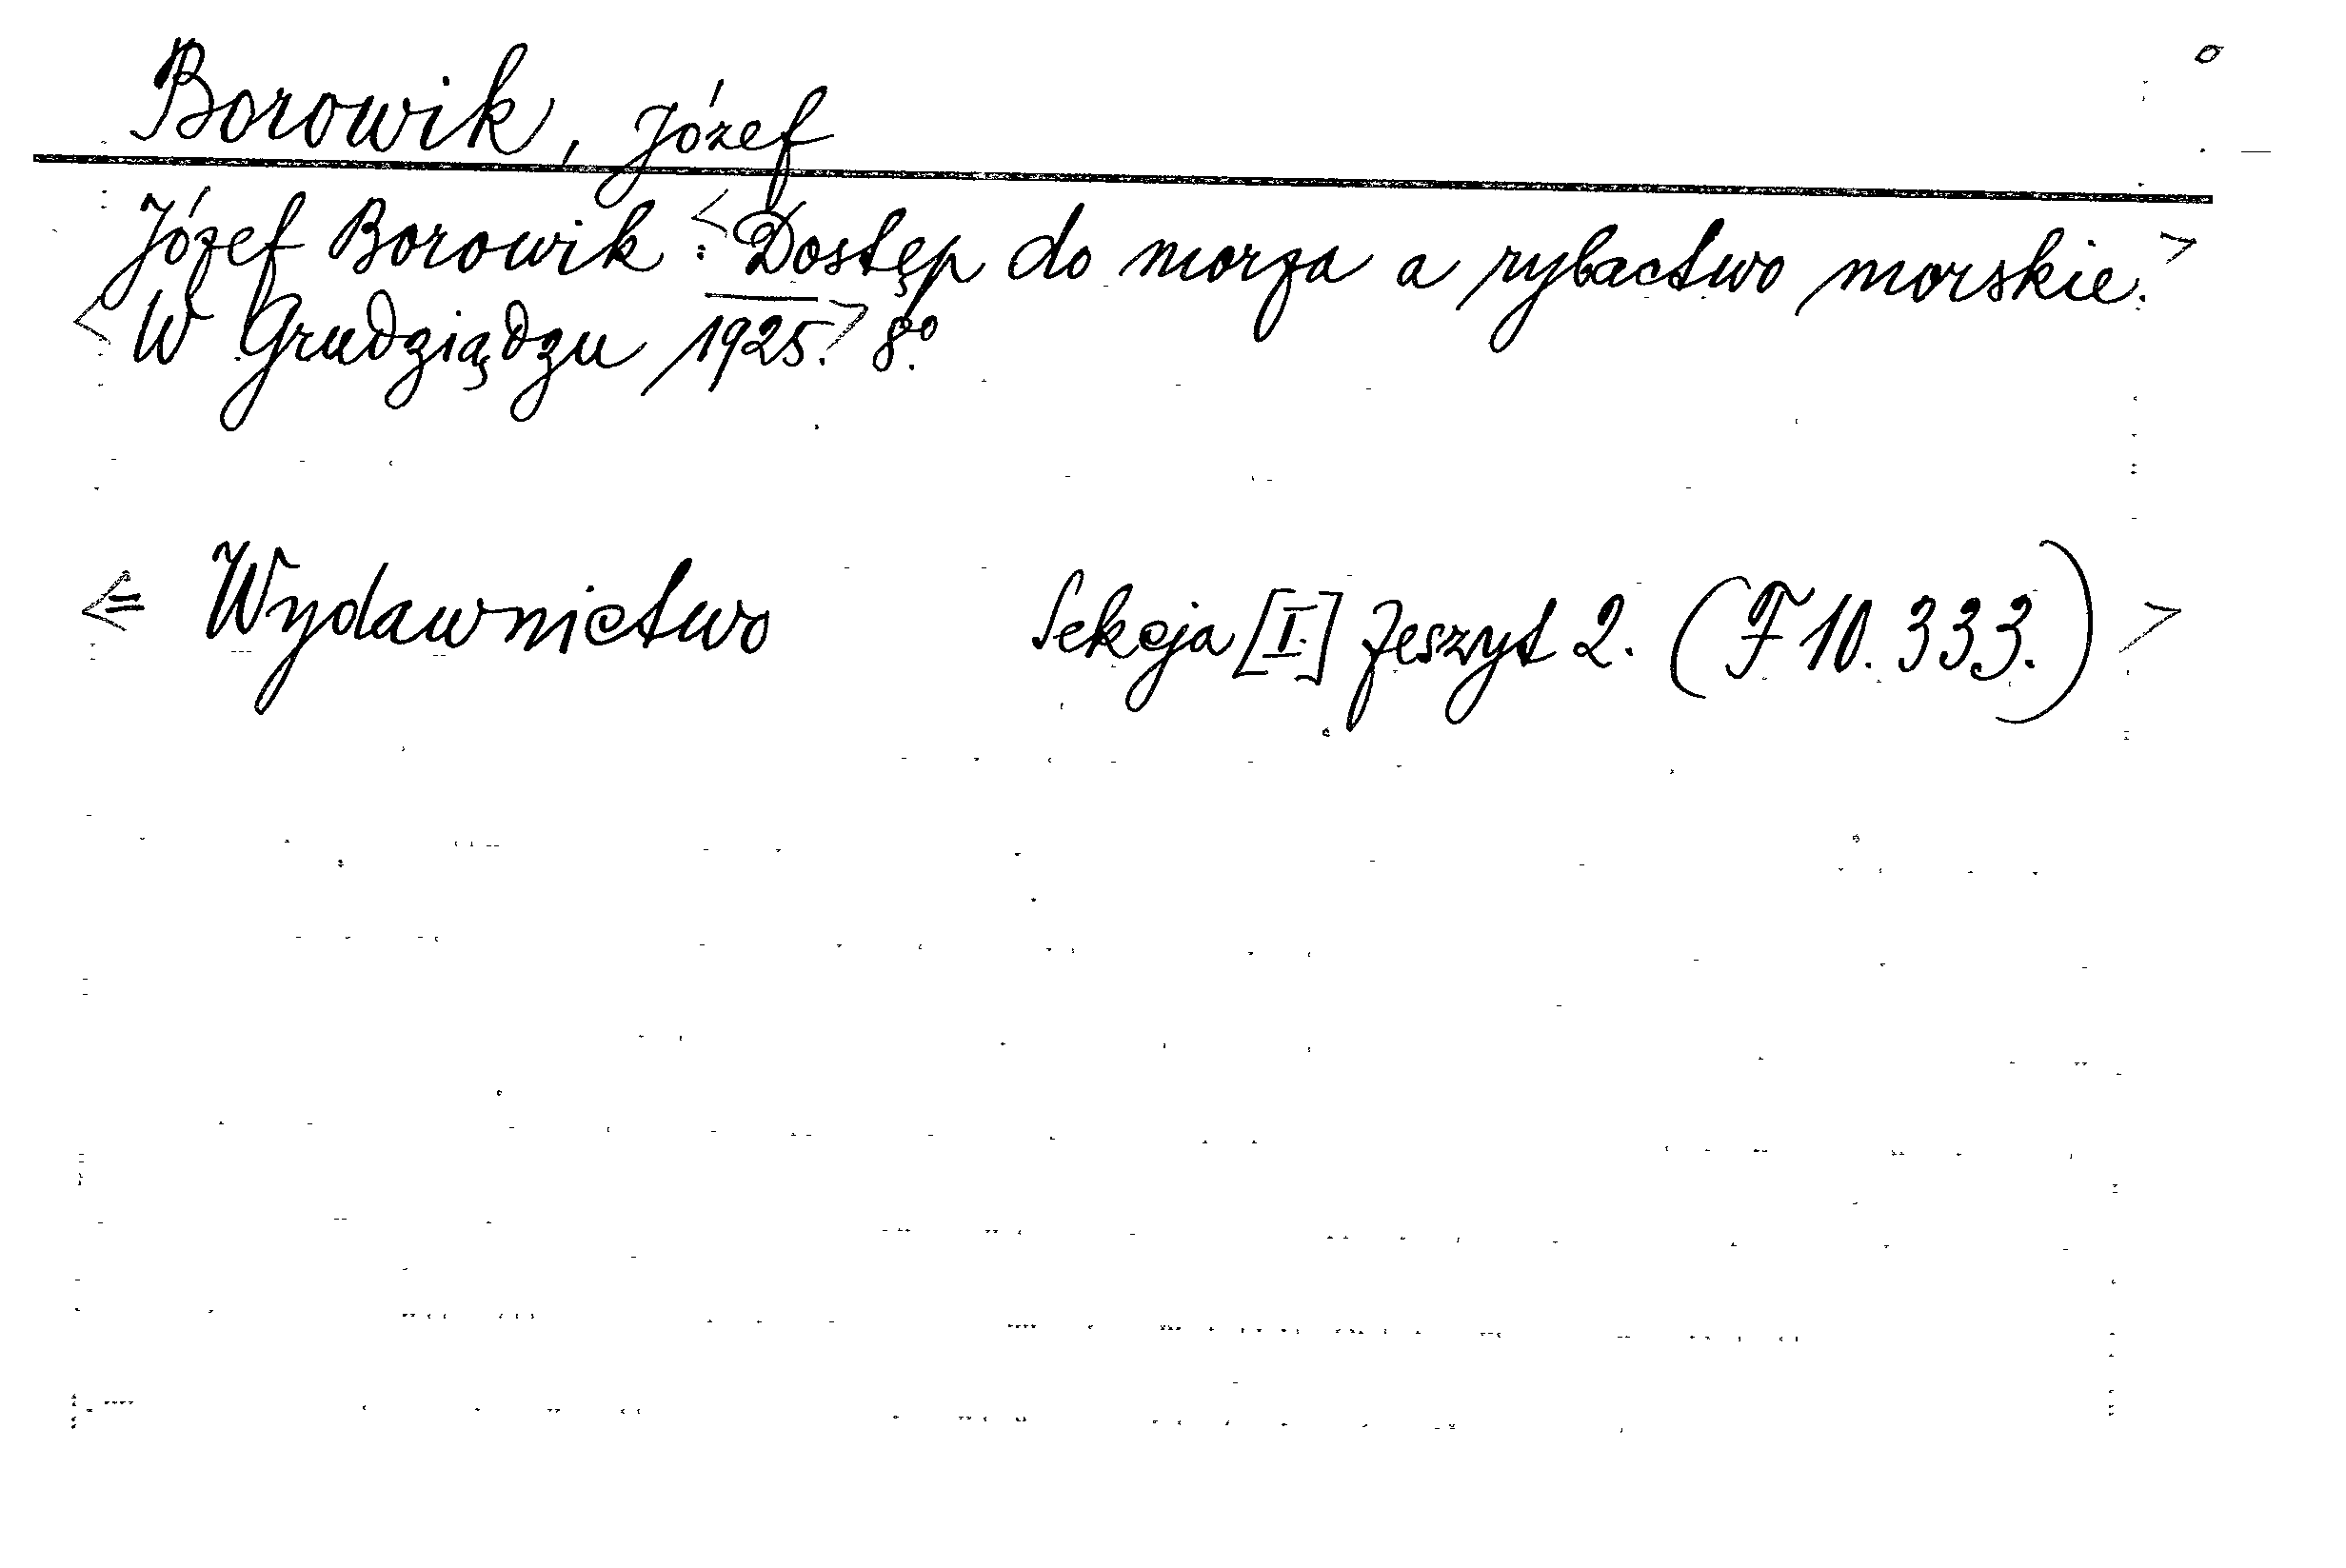 Borowik, Józef
Józef Borowik: <Dostęp do morza a rybactwo morskie.>
<W Grudziądzu 1925.> 8º.
<= Wydawnictwo Sekcja [I.] Zeszyt 2. (F 10. 333.)>